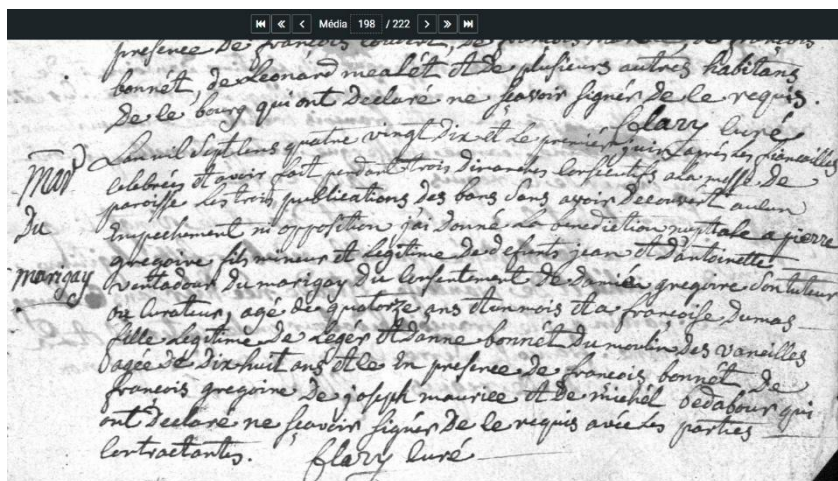 Média 198 / 222
presence de françois
bonnét, de Leonard mealét et de plusieurs autres habitans
de le bourg qui ont declaré ne sçavoir signér de le requis.
flary curé
L'an mil sept cens quatre vingt dix et le premiér juin apres les fiancailles
celebrées et avoir fait pendant trois dimanches consecutifs a la messe de
paroisse les trois publications des bans sans avoir decouvert aucun
empechement ni opposition j'ai donné la benediction nuptale a pierre
gregoire fils mineur et legitime de defunts jean et d'antoinette
ventadour du marigay du consentement de damién gregoire son tuteur
ou curateur, agé de quatorze ans et un mois et a françoise dumas
fille legitime de legér et d'anne bonnét du moulin des vareilles
agée de dix huit ans et le en presence de francois bonnét, de
françois gregoire de joseph mauriee et de michél qui
ont declaré ne sçavoir signér de le requis avéc les parties
contractantes. flary curé
mar
du
marigay